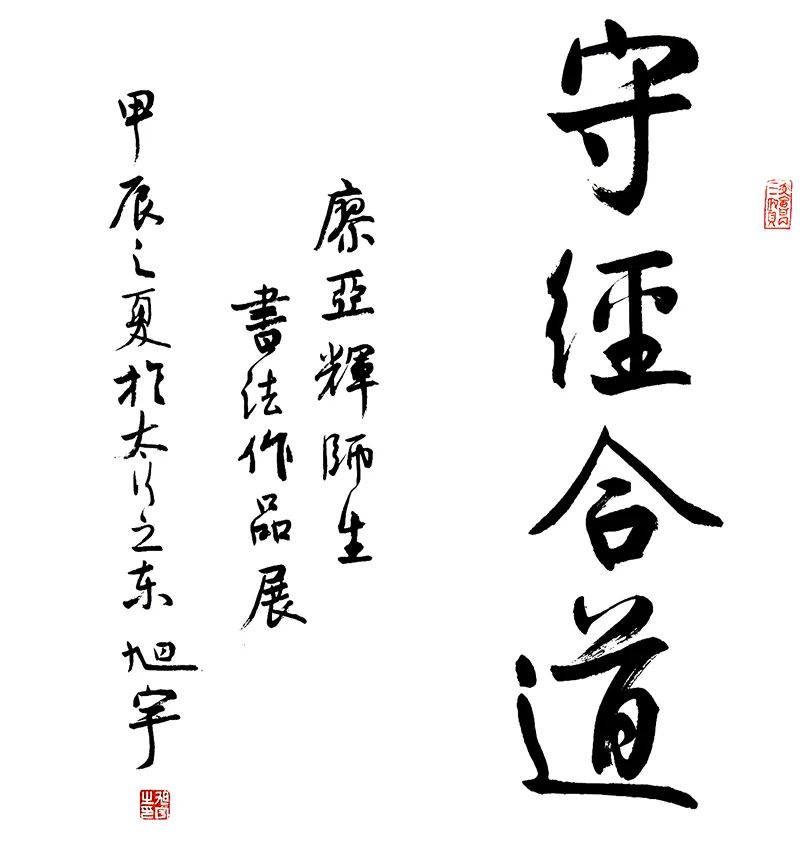 守經合道
廖亞輝師生
書法作品展
甲辰之夏於太行之东旭宇
旭宇之印